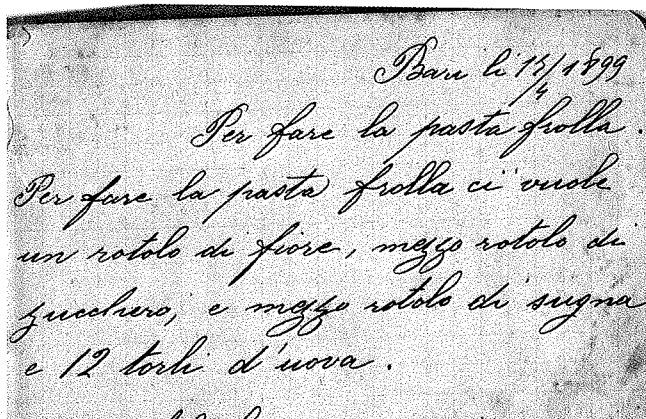 Bari li 15/4 1899
Per fare la pasta frolla.
Per fare la pasta frolla ci vuole
un rotolo di fiore, mezzo rotolo di
zucchero, e mezzo rotolo di sugna
e 12 torli d'uova.